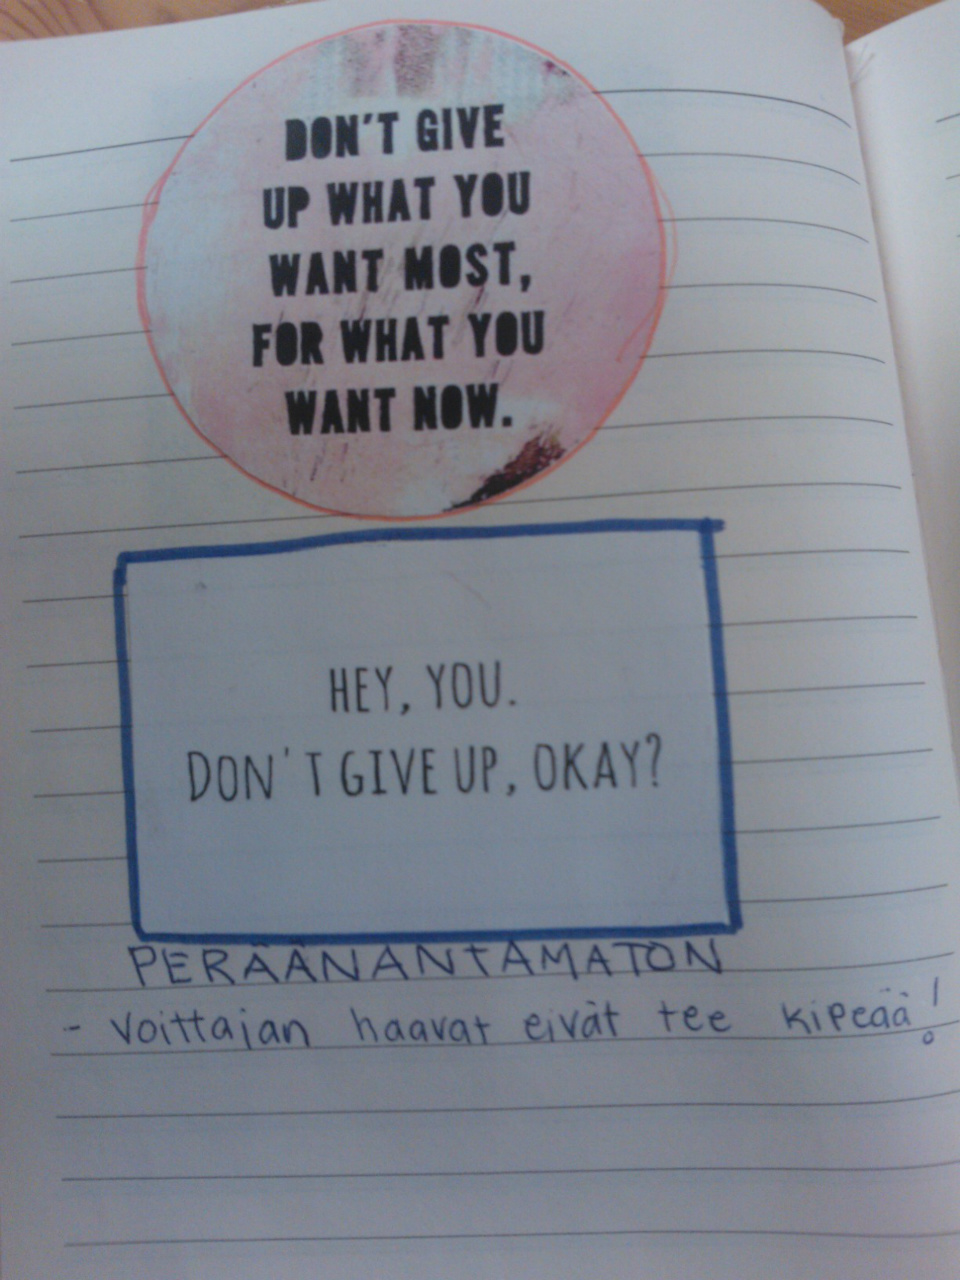 DON'T GIVE
UP WHAT YOU
WANT MOST,
FOR WHAT YOU
WANT NOW.
HEY, YOU.
DON'T GIVE UP, OKAY?
PERÄÄNANTAMATON
- Voittajan haavat eivät tee kipeää!